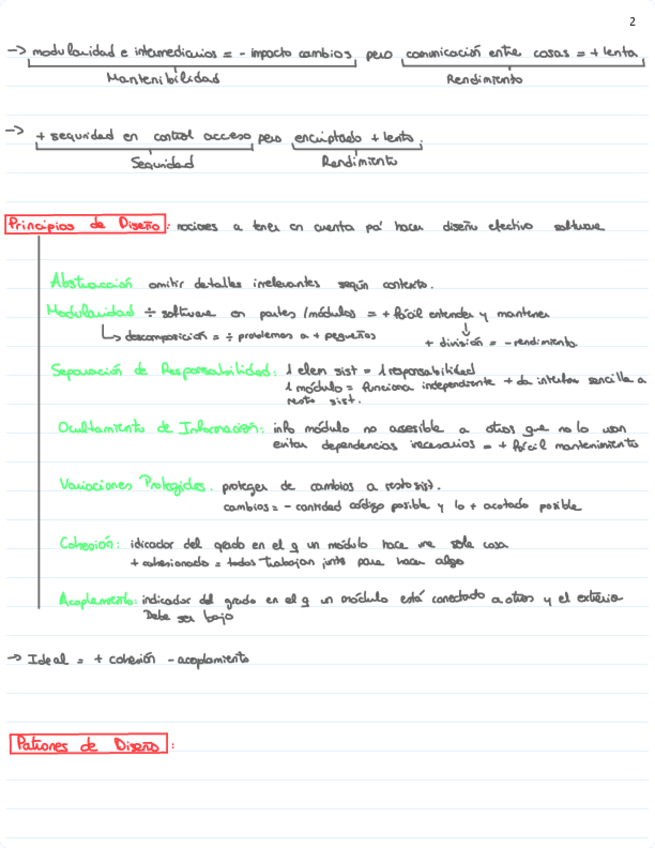 2
-> modularidad e intermediarios = - impacto cambios, pero comunicación entre cosas = + lenta,
Mantenibilidad Rendimiento
-> + seguridad en control acceso pero encriptado + lento.
Seguridad Rendimiento
Principios de Diseño: nociones a tener en cuenta pa' hacer diseño efectivo software
Abstracción omitir detalles irrelevantes según contexto.
Modularidad ÷ software en partes /módulos = + fácil entender y mantener
↳ descomposición = ÷ problemas a + pequeños
↓
+ división = - rendimiento
Separación de Responsabilidad: 1 elem sist = 1 responsabilidad
1 módulo = funciona independiente + da interfaz sencilla a
resto sist.
Ocultamiento de Información: info módulo no accesible a otros que no lo usan
evitar dependencias inecesarios = + fácil mantenimiento
Variaciones Protegidas. proteger de cambios a resto sist.
cambios = - cantidad código posible y lo + acotado posible
Cohesión: idicador del grado en el q un módulo hace una sola cosa
+ cohesionado = todos trabajan junts para hacer algo
Acoplamiento: indicador del grado en el q un módulo está conectado a otros y el exterior
Debe ser bajo
-> Ideal = + cohesión - acoplamiento
Patrones de Diseño: